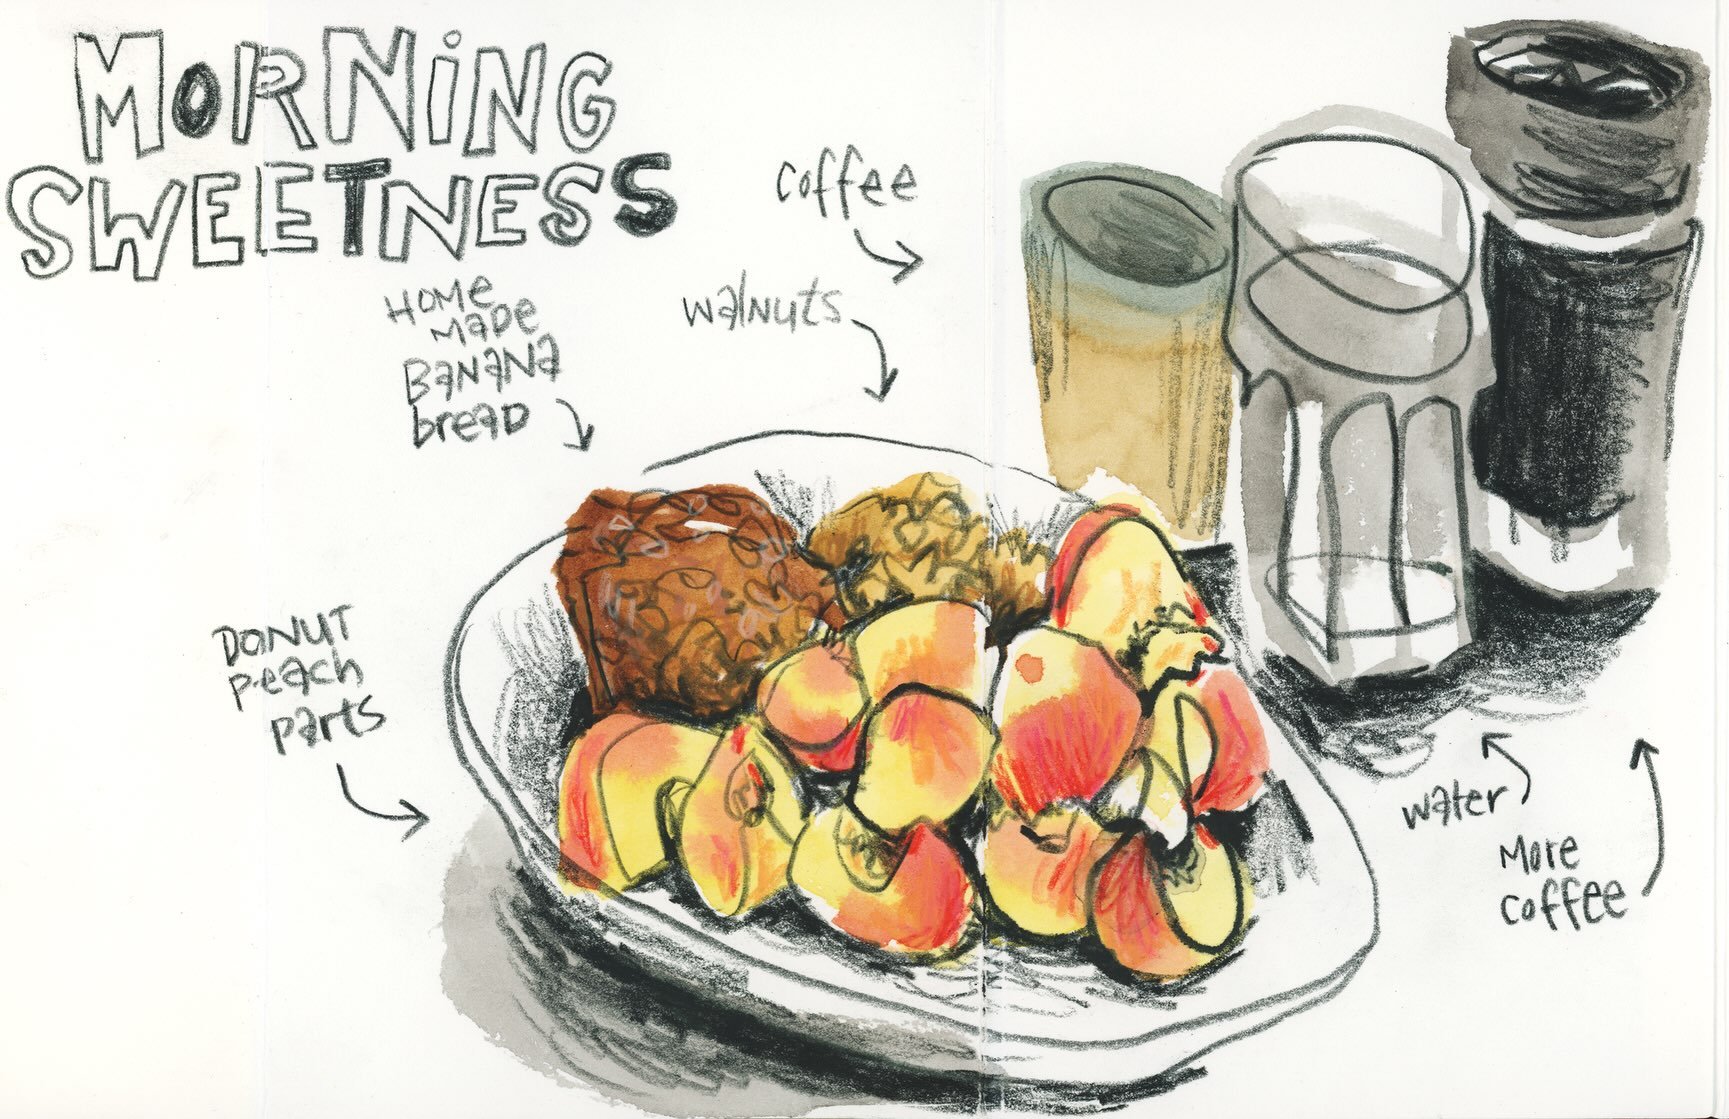 MORNiNG
SWEETNESS
HOMe
MaDe
BaNaNa
breaD
coffee
walnuts
DoNUT
peach
parts
water
More
coffee